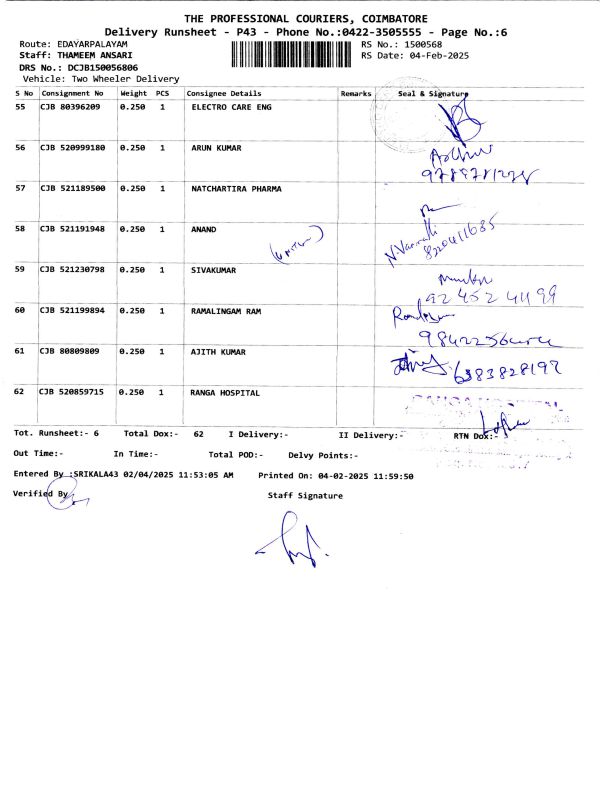 THE PROFESSIONAL COURIERS, COIMBATORE
Delivery Runsheet - P43 - Phone No.:0422-3505555 - Page No.:6
Route: EDAYARPALAYAM RS No.: 1500568
Staff: THAMEEM ANSARI RS Date: 04-Feb-2025
DRS No.: DCJB150056806
Vehicle: Two Wheeler Delivery
S No Consignment No Weight PCS Consignee Details Remarks Seal & Signature
55 CJB 80396209 0.250 1 ELECTRO CARE ENG
56 CJB 520999180 0.250 1 ARUN KUMAR
57 CJB 521189500 0.250 1 NATCHARTIRA PHARMA
58 CJB 521191948 0.250 1 ANAND
8220411635
59 CJB 521230798 0.250 1 SIVAKUMAR
92452 41199
60 CJB 521199894 0.250 1 RAMALINGAM RAM
61 CJB 80809809 0.250 1 AJITH KUMAR
6383828197
62 CJB 520859715 0.250 1 RANGA HOSPITAL
Tot. Runsheet:- 6 Total Dox:- 62 I Delivery:- II Delivery:- RTN Dox:-
Out Time:- In Time:- Total POD:- Delvy Points:-
Entered By :SRIKALA43 02/04/2025 11:53:05 AM Printed On: 04-02-2025 11:59:50
Verified By Staff Signature